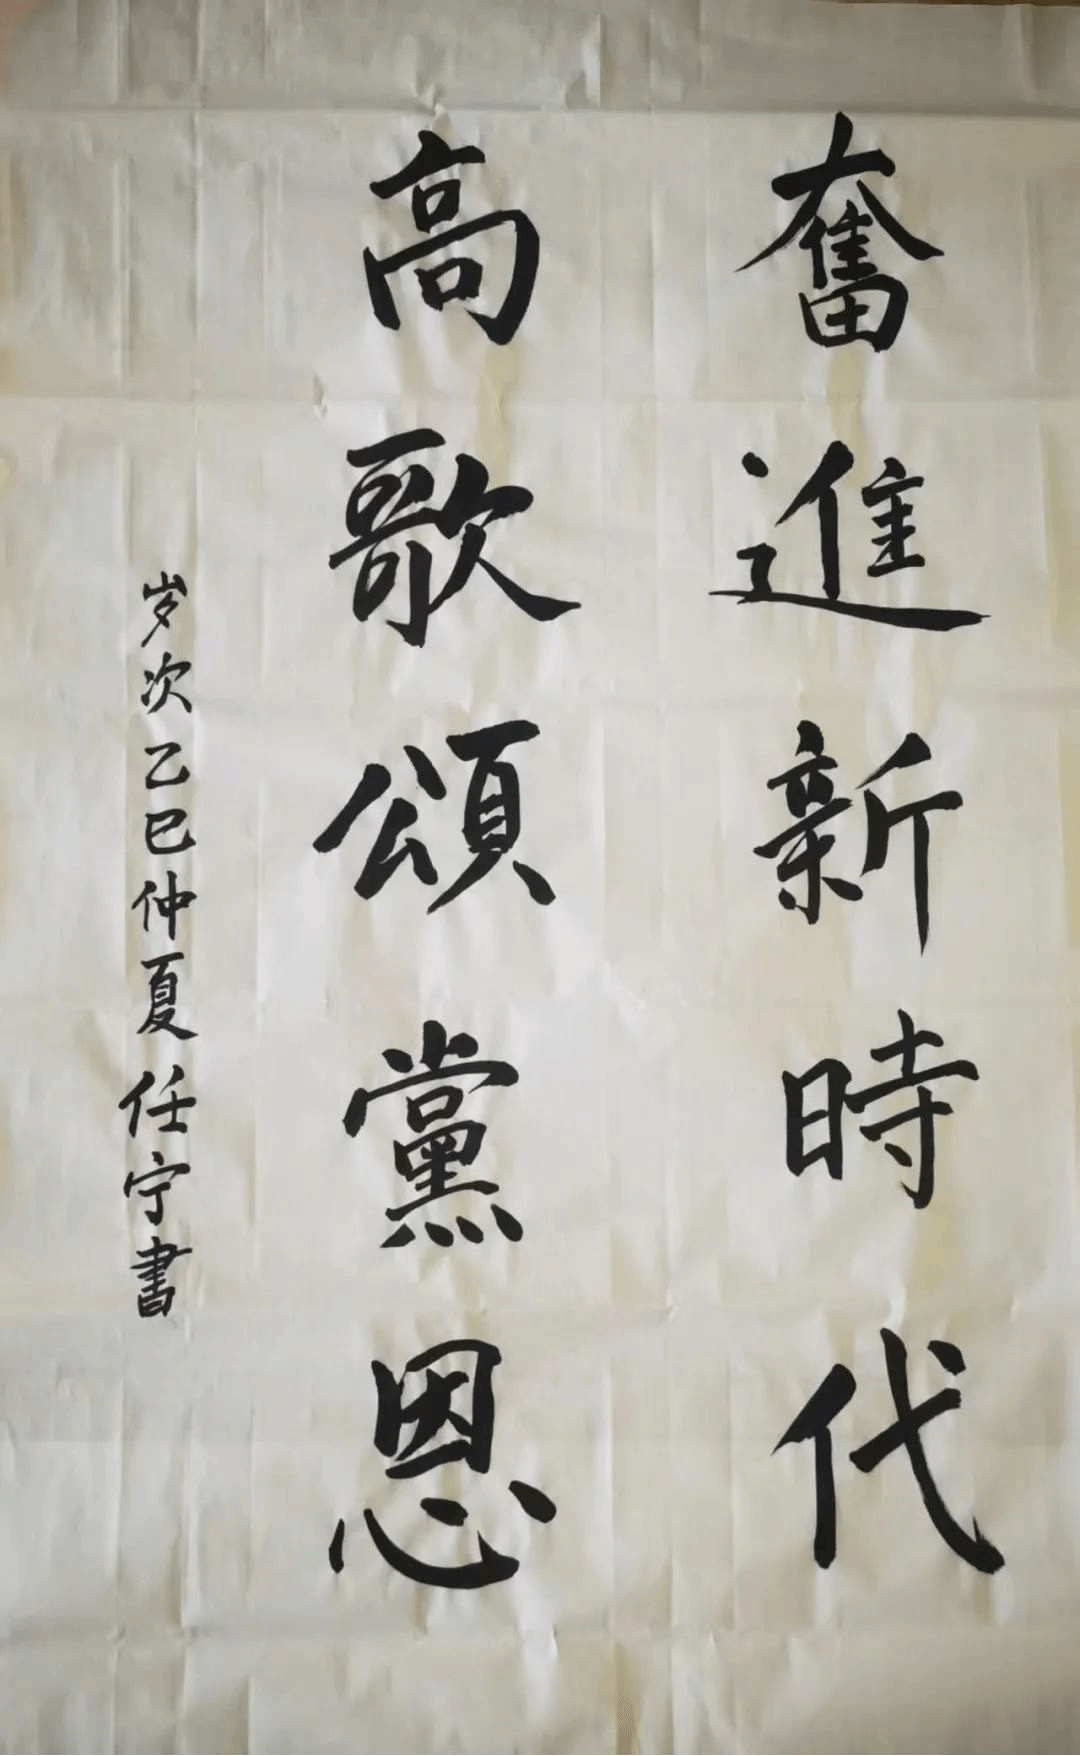 奮進新時代
高歌頌黨恩
岁次乙巳仲夏任宁書